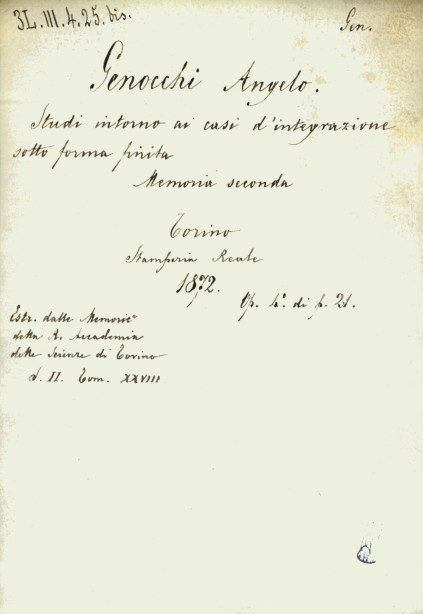 3L.III.4.25.bis.
Gen.
Genocchi Angelo.
Studi intorno ai casi d'integrazione
sotto forma finita
Memoria seconda
Torino
Stamperia Reale
1872.
Op. 4º. di p. 21.
Estr. dalle Memorie
della R. Accademia
delle Scienze di Torino
S. II. Tom. XXVIII